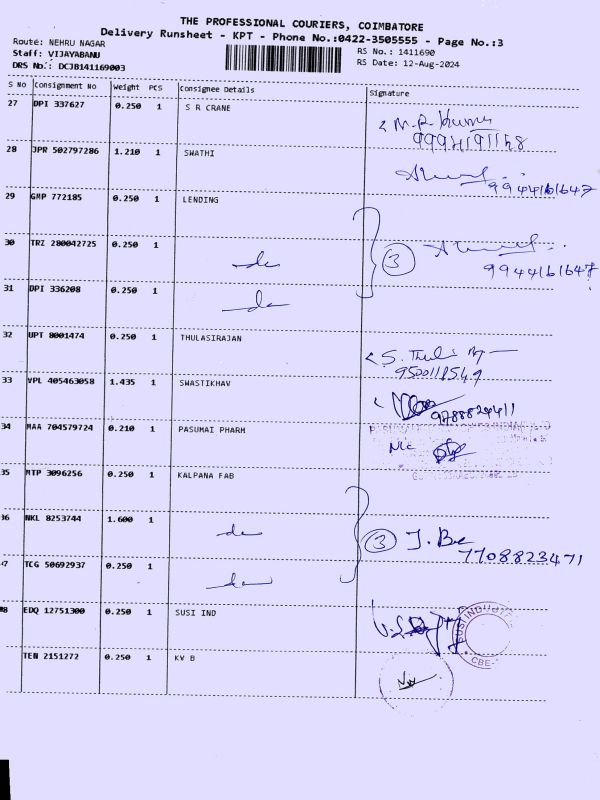 THE PROFESSIONAL COURIERS, COIMBATORE
Delivery Runsheet - KPT - Phone No.:0422-3505555 - Page No.:3
Route: NEHRU NAGAR
Staff: VIJAYABANU
DRS No.: DCJB141169003
RS No.: 1411690
RS Date: 12-Aug-2024
S No Consignment No Weight PCS Consignee Details Signature
27 DPI 337627 0.250 1 S R CRANE
28 JPR 502797286 1.210 1 SWATHI
9944161647
29 GMP 772185 0.250 1 LENDING
30 TRZ 280042725 0.250 1 do 3
9944161647
31 DPI 336208 0.250 1 do
32 UPT 8001474 0.250 1 THULASIRAJAN
33 VPL 405463058 1.435 1 SWASTIKHAV
34 MAA 704579724 0.210 1 PASUMAI PHARM
35 MTP 3096256 0.250 1 KALPANA FAB
36 NKL 8253744 1.600 1 do 3
7708823471
37 TCG 50692937 0.250 1 do
38 EDQ 12751300 0.250 1 SUSI IND
CBE
TEN 2151272 0.250 1 KV B